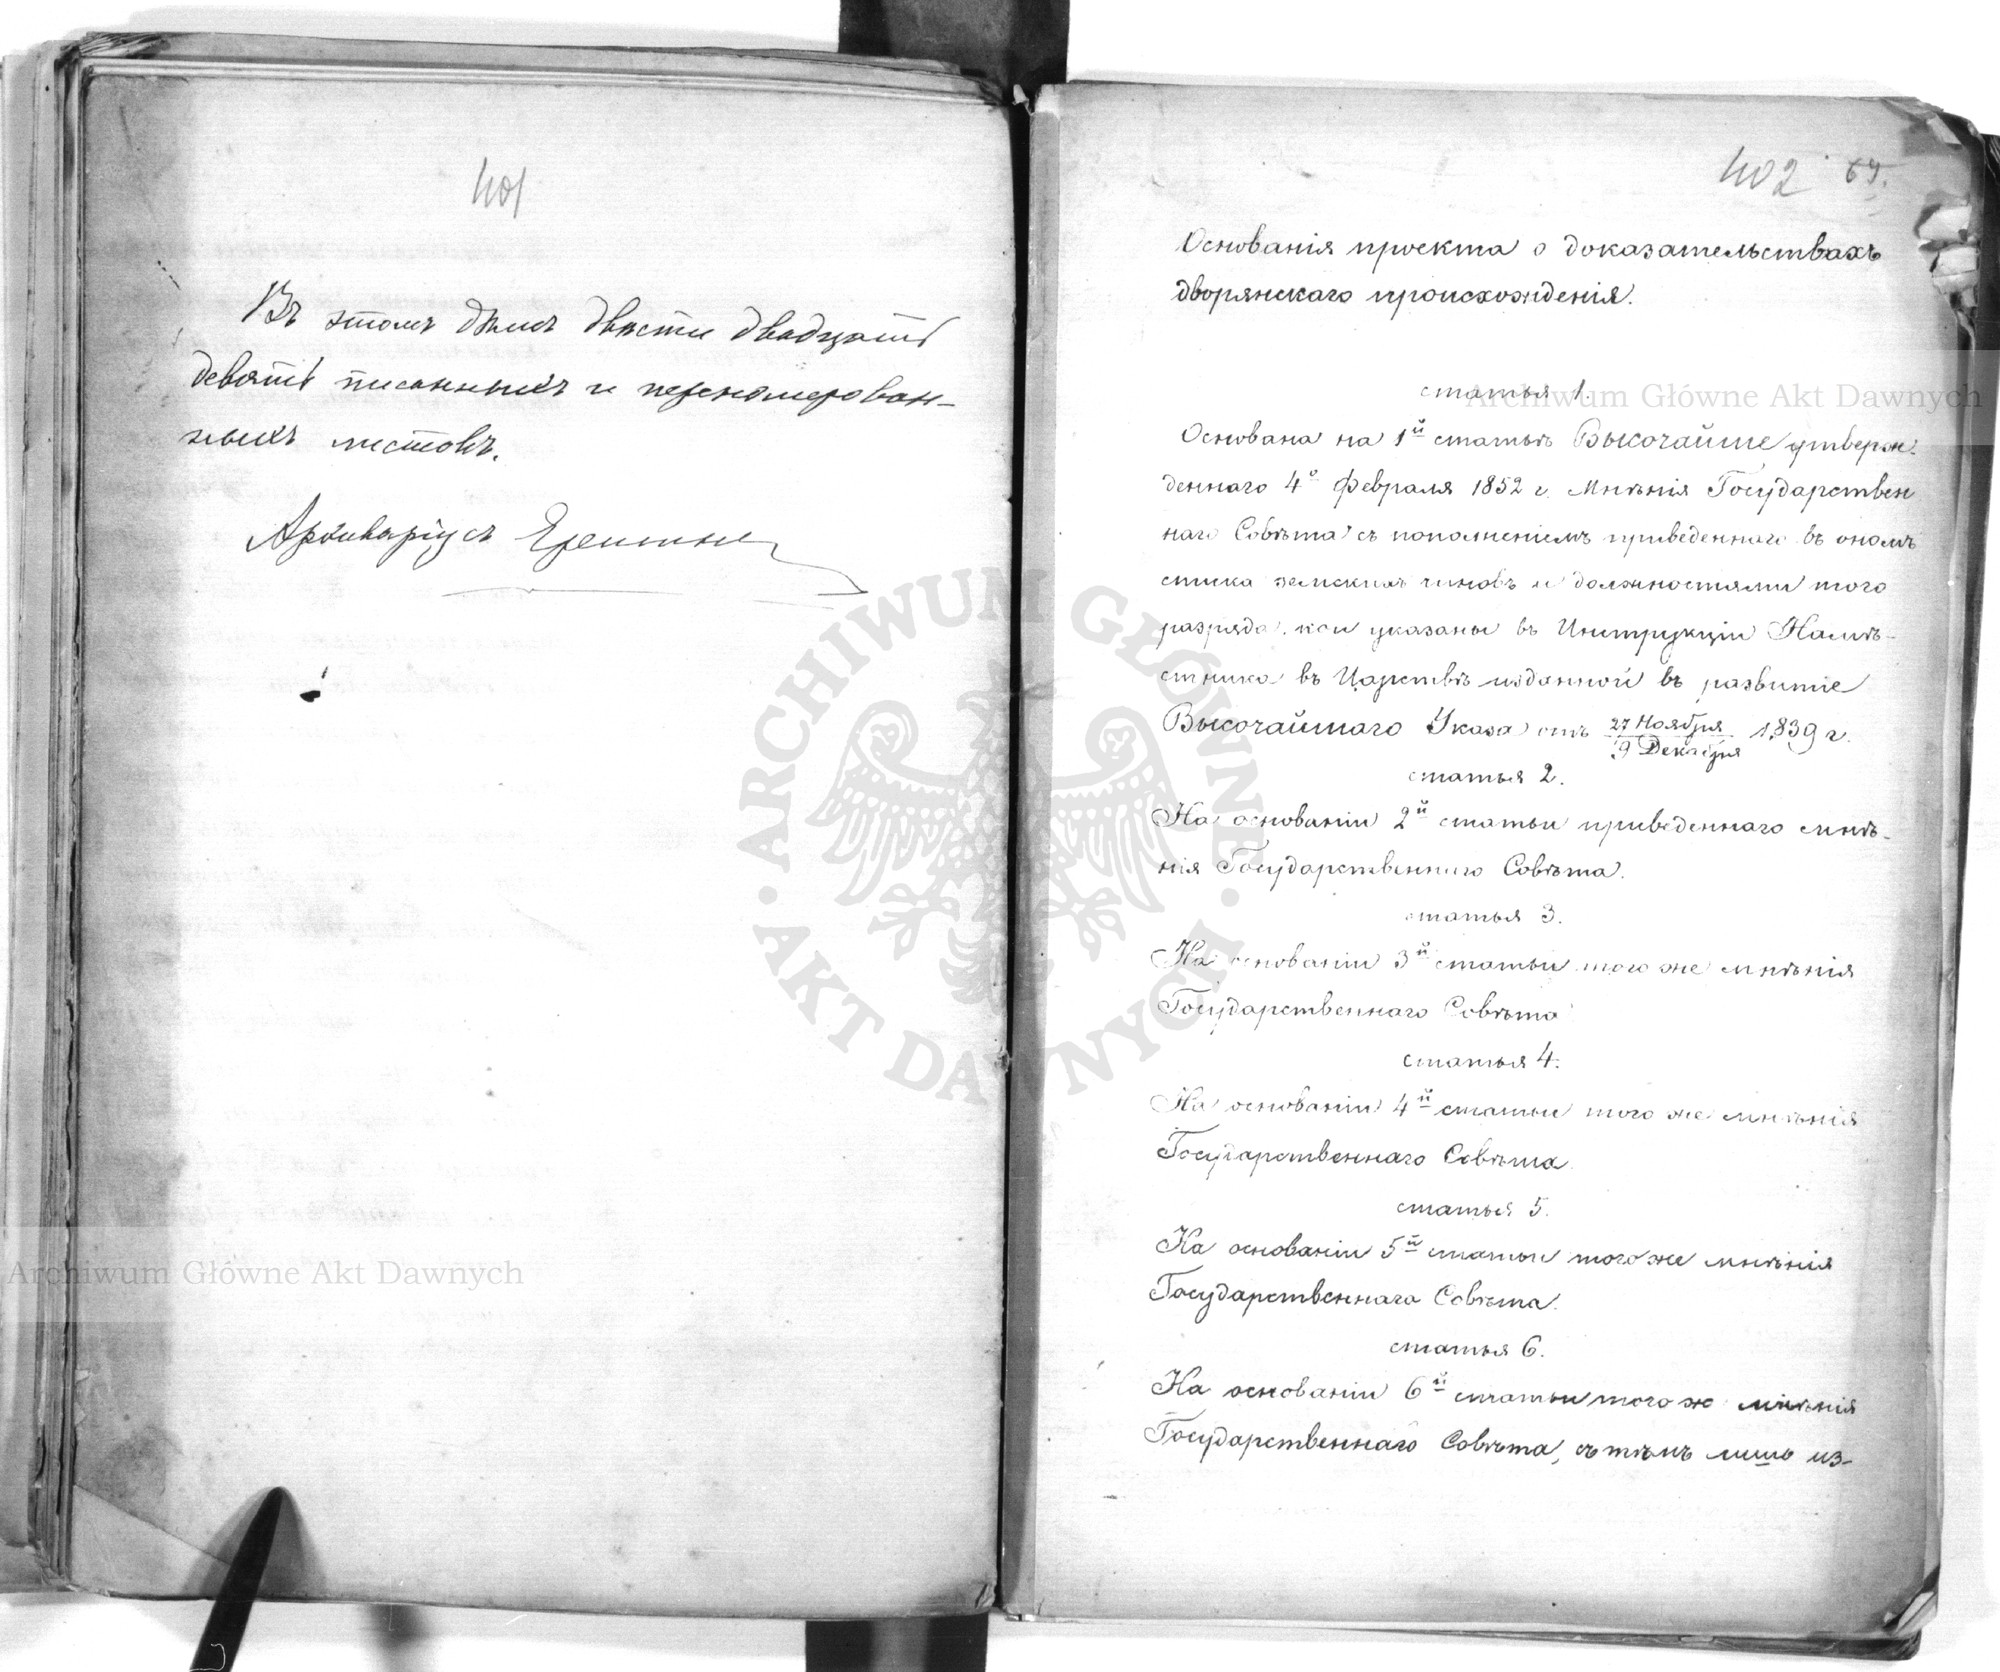 401
Въ этомъ дѣлѣ двѣсти двадцать
девять писанныхъ и перенумерован-
ныхъ листовъ.
Архиваріусъ
402 67.
Основанія проекта о доказательствахъ
дворянскаго происхожденія.
статья 1.
Основана на 1й статьѣ Высочайше утверж-
деннаго 4го Февраля 1852 г. Мнѣнія Государствен
наго Совѣта съ пополненіемъ приведеннаго въ ономъ
списка земскихъ чиновъ и должностями того
разряда, кои указаны въ Инструкціи Намѣ-
стника въ Царствѣ изданной въ развитіе
Высочайшаго Указа отъ 27 Ноября / 9 Декабря 1839 г.
статья 2.
На основаніи 2й статьи приведеннаго мнѣ-
нія Государственнаго Совѣта.
статья 3.
На основаніи 3й статьи того же мнѣнія
Государственнаго Совѣта
статья 4.
На основаніи 4й статьи того же мнѣнія
Государственнаго Совѣта
статья 5.
На основаніи 5й статьи того же мнѣнія
Государственнаго Совѣта.
статья 6.
На основаніи 6й статьи того ж мнѣнія
Государственнаго Совѣта, съ тѣмъ лишь из-
Archiwum Główne Akt Dawnych
Archiwum Główne Akt Dawnych
ARCHIWUM GŁÓWNE AKT DAWNYCH